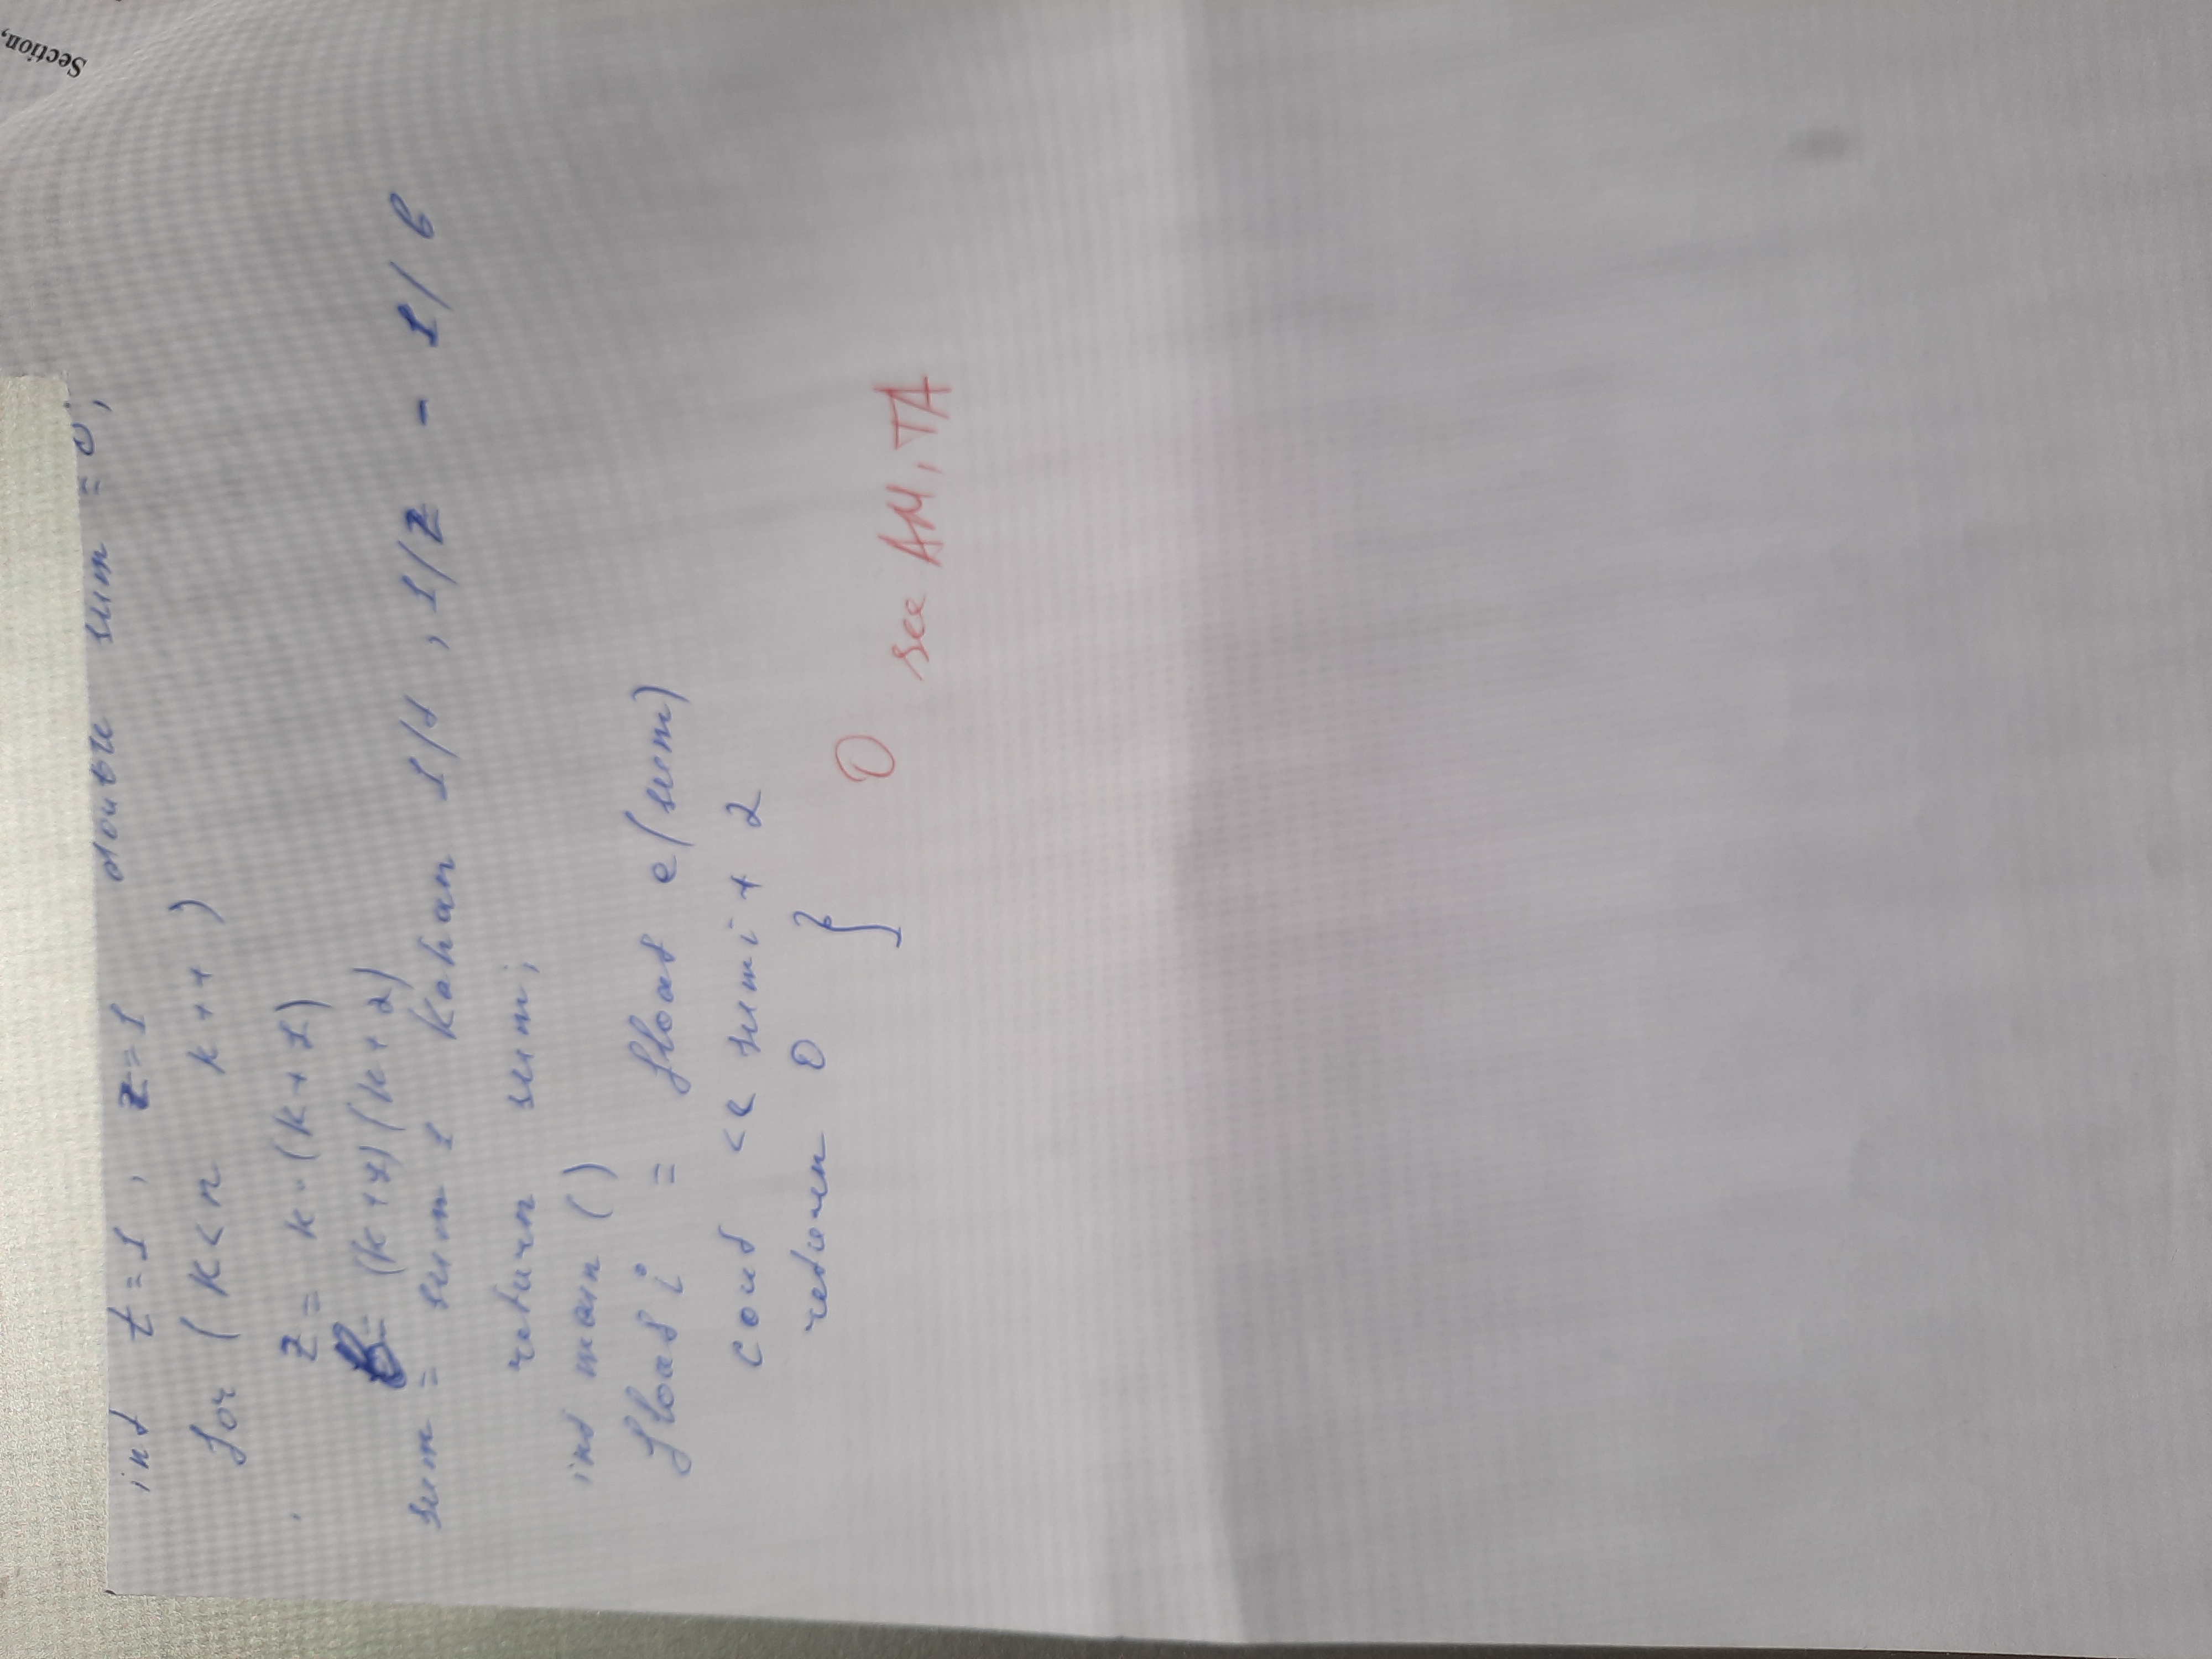 Section,
int t = 1 , z = 1 double sum = 0;
for ( k < n k++ )
z = k · (k + 1)
b = (k + 1) (k + 2)
sum = sum 1 Kahan 1/t , 1/z - 1/b
return sum;
int main ()
float i = float e(sum)
cout << sumi + 2
return 0 }
0
see AM, TA